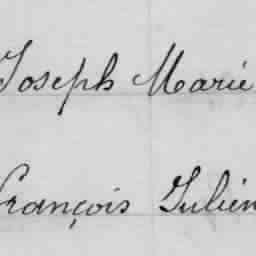 Joseph Marie
François Julien